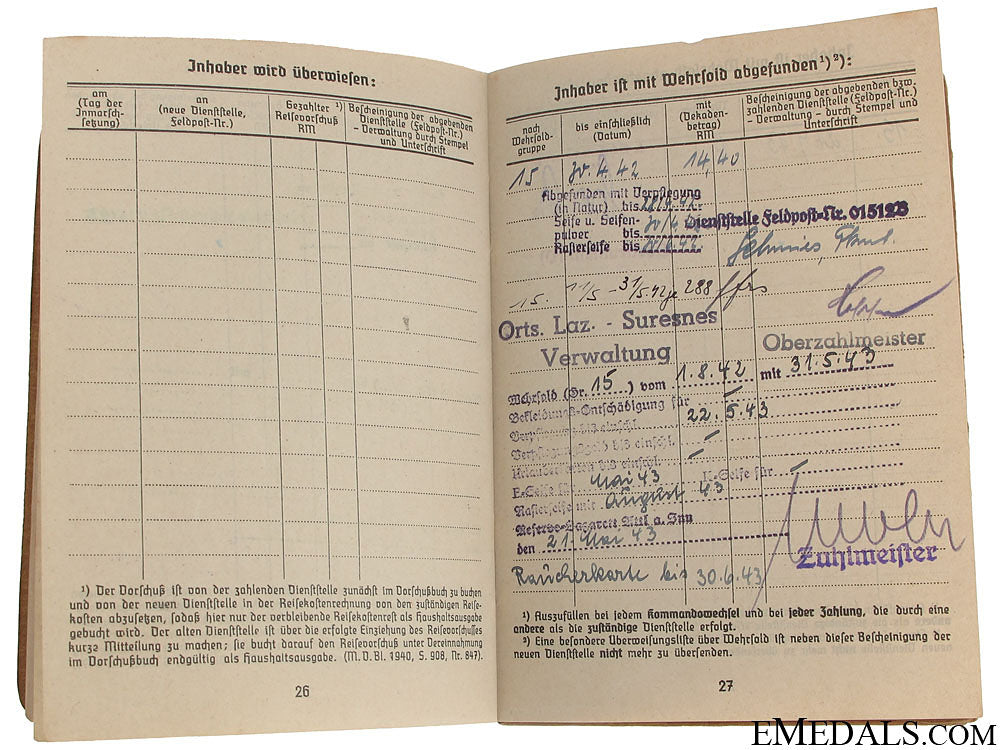 Inhaber wird überwiesen:
am
(Tag der
Inmarsch-
setzung)
an
(neue Dienststelle,
Feldpost-Nr.)
Gezahlter ¹)
Reisevorschuß
RM
Bescheinigung der abgebenden
Dienststelle (Feldpost-Nr.)
- Verwaltung durch Stempel
und Unterschrift
¹) Der Vorschuß ist von der zahlenden Dienststelle zunächst im Vorschußbuch zu buchen
und von der neuen Dienststelle in der Reisekostenrechnung von den zuständigen Reise-
kosten abzusetzen, sodaß hier nur der verbleibende Reisekostenrest als Haushaltsausgabe
gebucht wird. Der alten Dienststelle ist über die erfolgte Einziehung des Reisevorschusses
kurze Mitteilung zu machen; sie bucht darauf den Reisevorschuß unter Vereinnahmung
im Vorschußbuch endgültig als Haushaltsausgabe. (M. D. Bl. 1940, S. 908, Nr. 847).
26
Inhaber ist mit Wehrsold abgefunden ¹) ²):
nach
Wehrsold-
gruppe
bis einschließlich
(Datum)
mit
(Dekaden-
betrag) RM
Bescheinigung der abgebenden bzw.
zahlenden Dienststelle (Feldpost-Nr.)
- Verwaltung - durch Stempel und
Unterschrift
15 30.4.42 14,40
Abgefunden mit Verpflegung
(in Natur) bis
Seife u. Seifen-
pulver bis
Rasierseife bis
Dienststelle Feldpost-Nr. 01512B
15. 288 ffrs
Orts. Laz. - Suresnes
Verwaltung
Oberzahlmeister
Wehrsold (Gr. 15) vom 1.8.42 mit 31.5.43
Bekleidungs-Entschädigung für
Verpflegung bis einschl. 22.5.43
Verpfleg.-Geld bis einschl.
bis einschl.
F-Seife für Mai 43 K-Seife für
Rasierseife mit August 43
Reserve-Lazarett Attl a. Inn
den 21. Mai 43
Zahlmeister
Raucherkarte bis 30.6.43
¹) Auszufüllen bei jedem Kommandowechsel und bei jeder Zahlung, die durch eine
andere als die zuständige Dienststelle erfolgt.
²) Eine besondere Überweisungsliste über Wehrsold ist neben dieser Bescheinigung der
neuen Dienststelle nicht mehr zu übersenden.
27
EMEDALS.COM